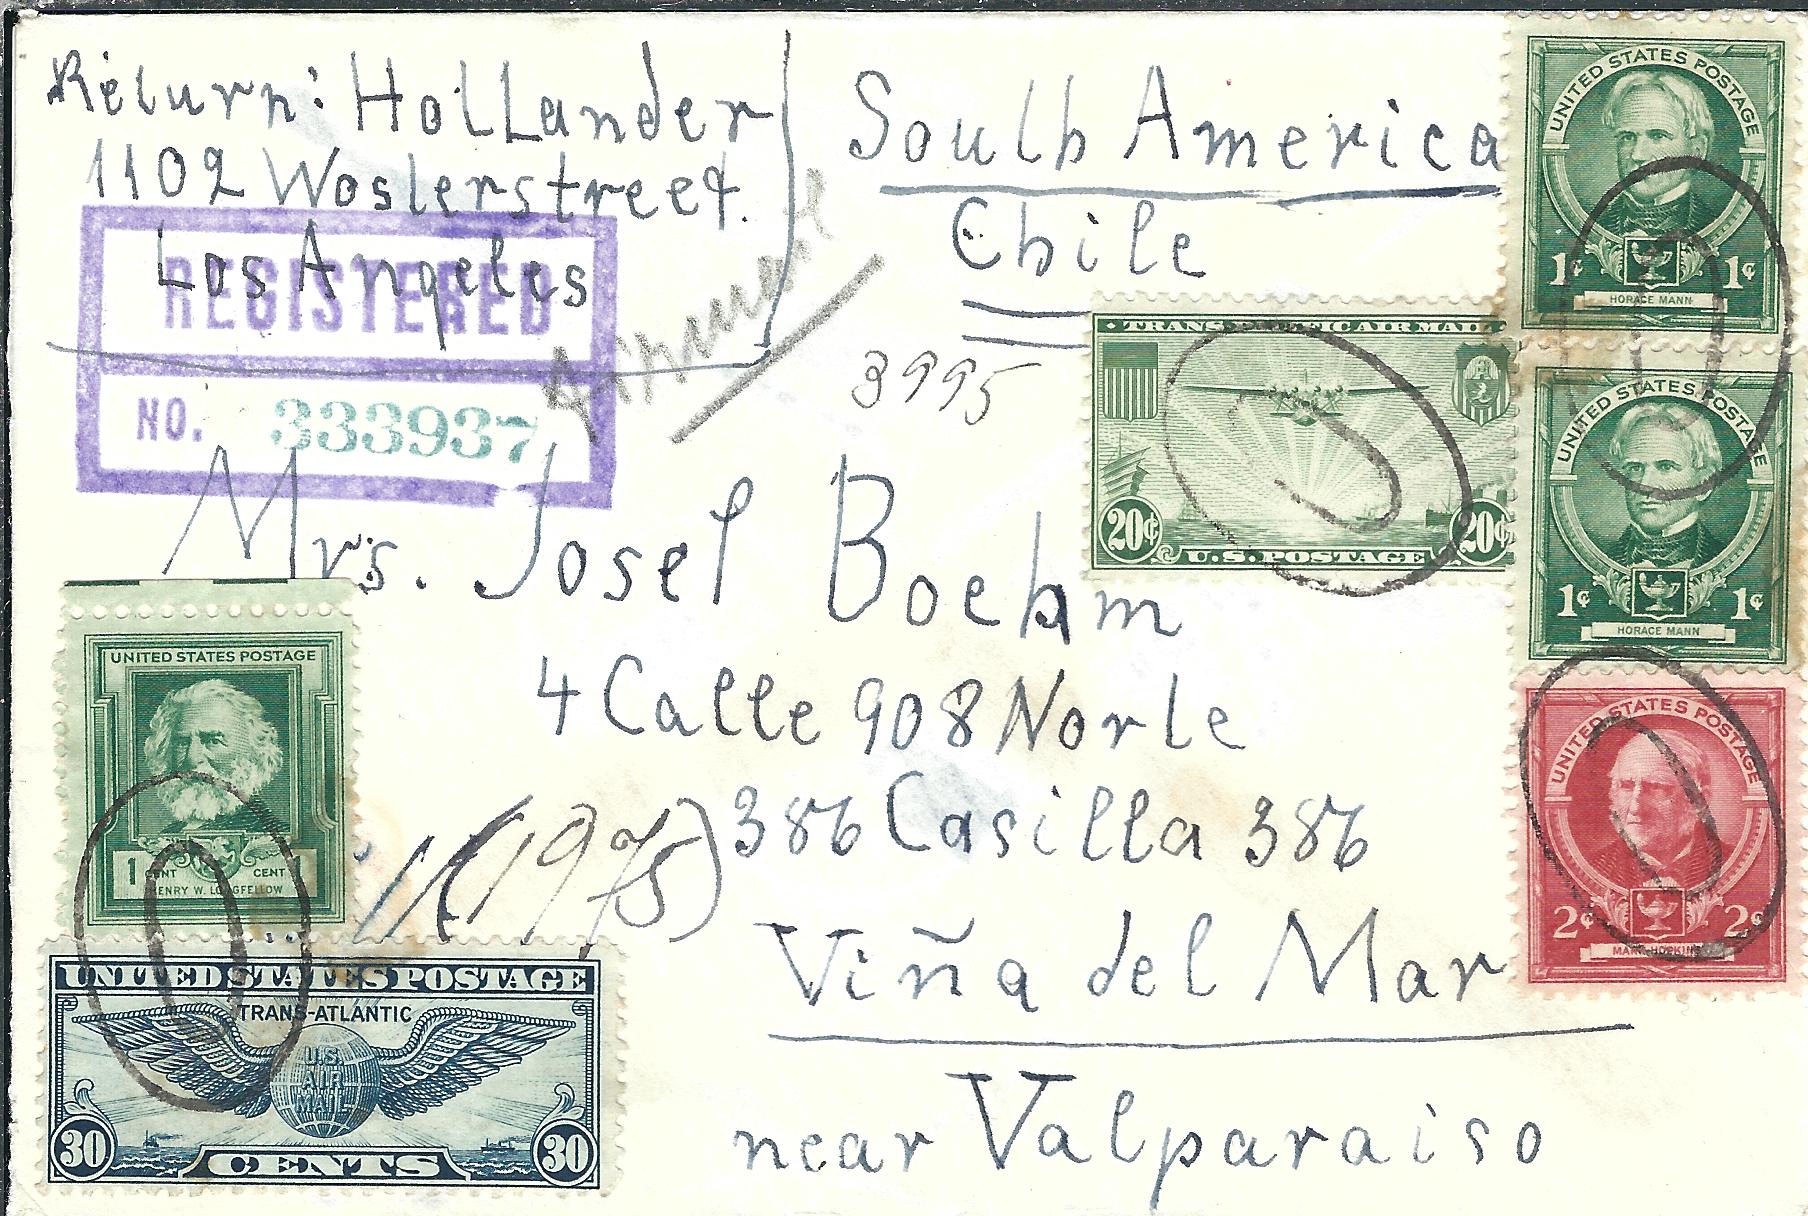 Return: Hollander
1102 Wosterstreet.
Los Angeles
REGISTERED
NO. 333937
Airmail
South America
Chile
3995
Mrs. Josef Boehm
4 Calle 908 Norte
(1975)
386 Casilla 386
Viña del Mar
near Valparaiso
UNITED STATES POSTAGE
1¢ 1¢
HORACE MANN
TRANS-PACIFIC AIR MAIL
20¢ 20¢
U.S. POSTAGE
UNITED STATES POSTAGE
1¢ 1¢
HORACE MANN
UNITED STATES POSTAGE
2¢ 2¢
MARK HOPKINS
UNITED STATES POSTAGE
1 CENT CENT 1
HENRY W. LONGFELLOW
UNITED STATES POSTAGE
TRANS-ATLANTIC
U.S.
AIR
MAIL
30 30
CENTS